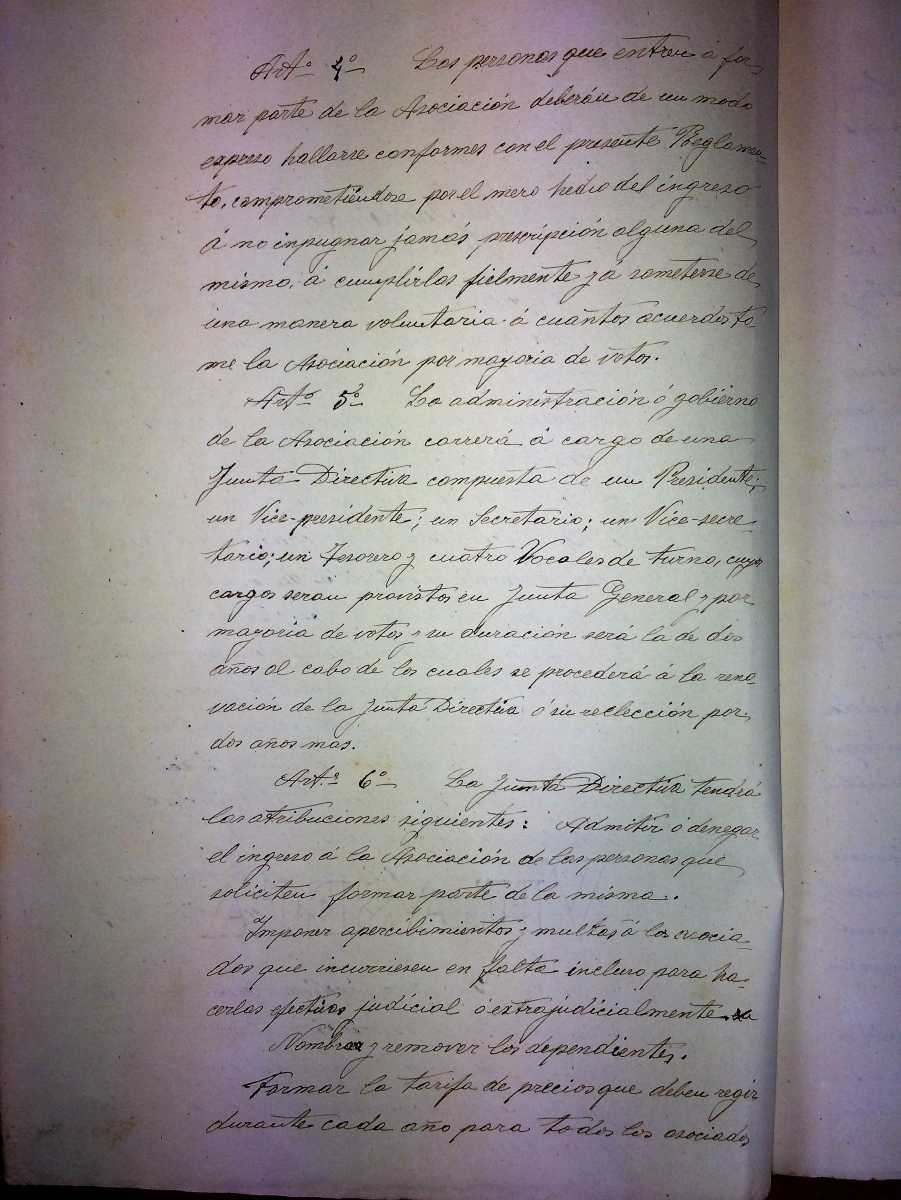 Art.º 4º Las personas que entren á for-
mar parte de la Asociación deberán de un modo
expreso hallarse conformes con el presente Reglamen-
to, comprometiéndose por el mero hecho del ingreso
á no inpugnar jamás prescripción alguna del
mismo, á cumplirlos fielmente y á someterse de
una manera voluntaria á cuantos acuerdos to
me la Asociación por mayoria de votos.
Artº 5º La administración ó gobierno
de la Asociación correrá á cargo de una
Junta Directiva compuesta de un Presidente;
un Vice-presidente; un Secretario; un Vice-secre-
tario; un Tesorero y cuatro Vocales de turno, cuyos
cargos seran provistos en Junta General y por
mayoria de votos y su duración será la de dos
años al cabo de los cuales se procederá á la reno-
vación de la Junta Directiva ó su reelección por
dos años mas.
Art.º 6º La Junta Directiva tendrá
las atribuciones siguientes: Admitir ó denegar
el ingreso á la Asociación de las personas que
soliciten formar parte de la misma.
Imponer apercibimientos y multas á los asocia-
dos que incurriesen en falta incluso para ha-
cerlas efectivas judicial ó extrajudicialmente.
Nombrar y remover los dependientes.
Formar la tarifa de precios que deben regir
durante cada año para todos los asociados